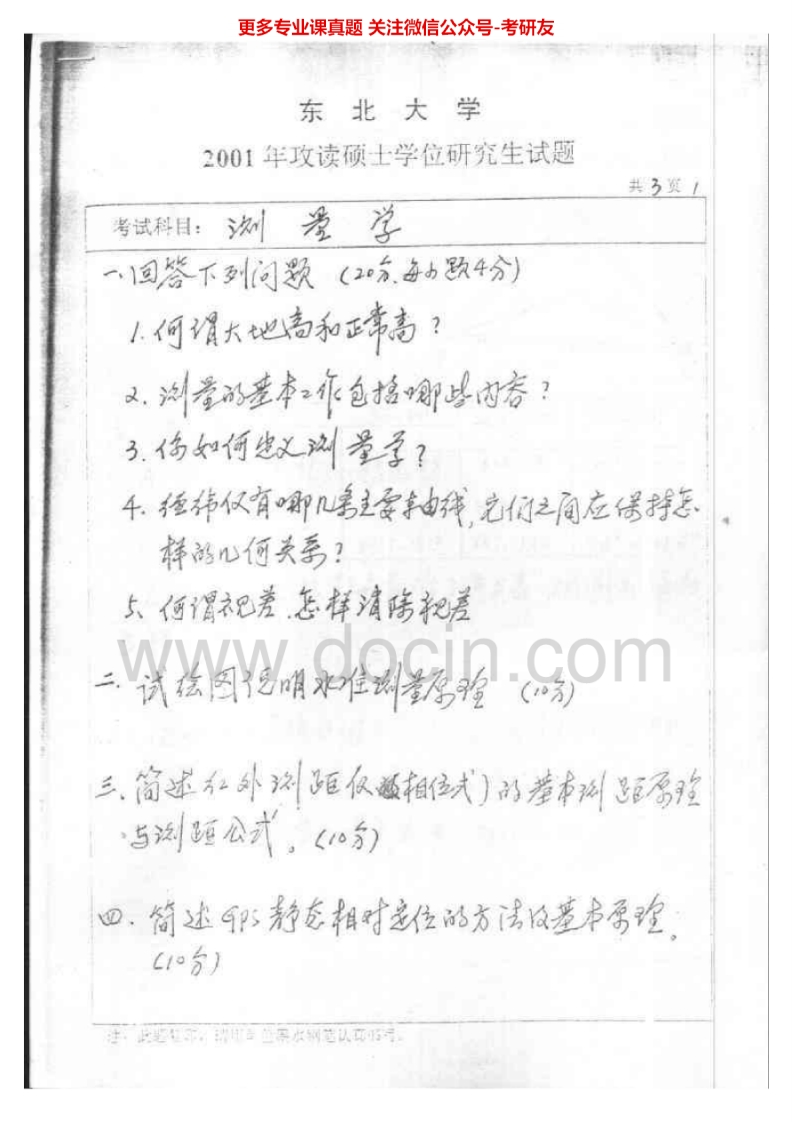 更多专业课真题 关注微信公众号-考研友
东 北 大 学
2001 年攻读硕士学位研究生试题
共 3 页 1
考试科目： 测 量 学
一、回答下列问题 （20分，每小题4分）
1. 何谓大地高和正常高？
2. 测量的基本工作包括哪些内容？
3. 你如何定义测量学？
4. 经纬仪有哪几条主要轴线，它们之间应保持怎
样的几何关系？
5、何谓视差．怎样消除视差
www.docin.com
二. 试绘图说明水准测量原理 （10分）
三、简述红外测距仪（相位式）的基本测距原理
与测距公式。（10分）
四. 简述GPS静态相对定位的方法及基本原理。
（10分）